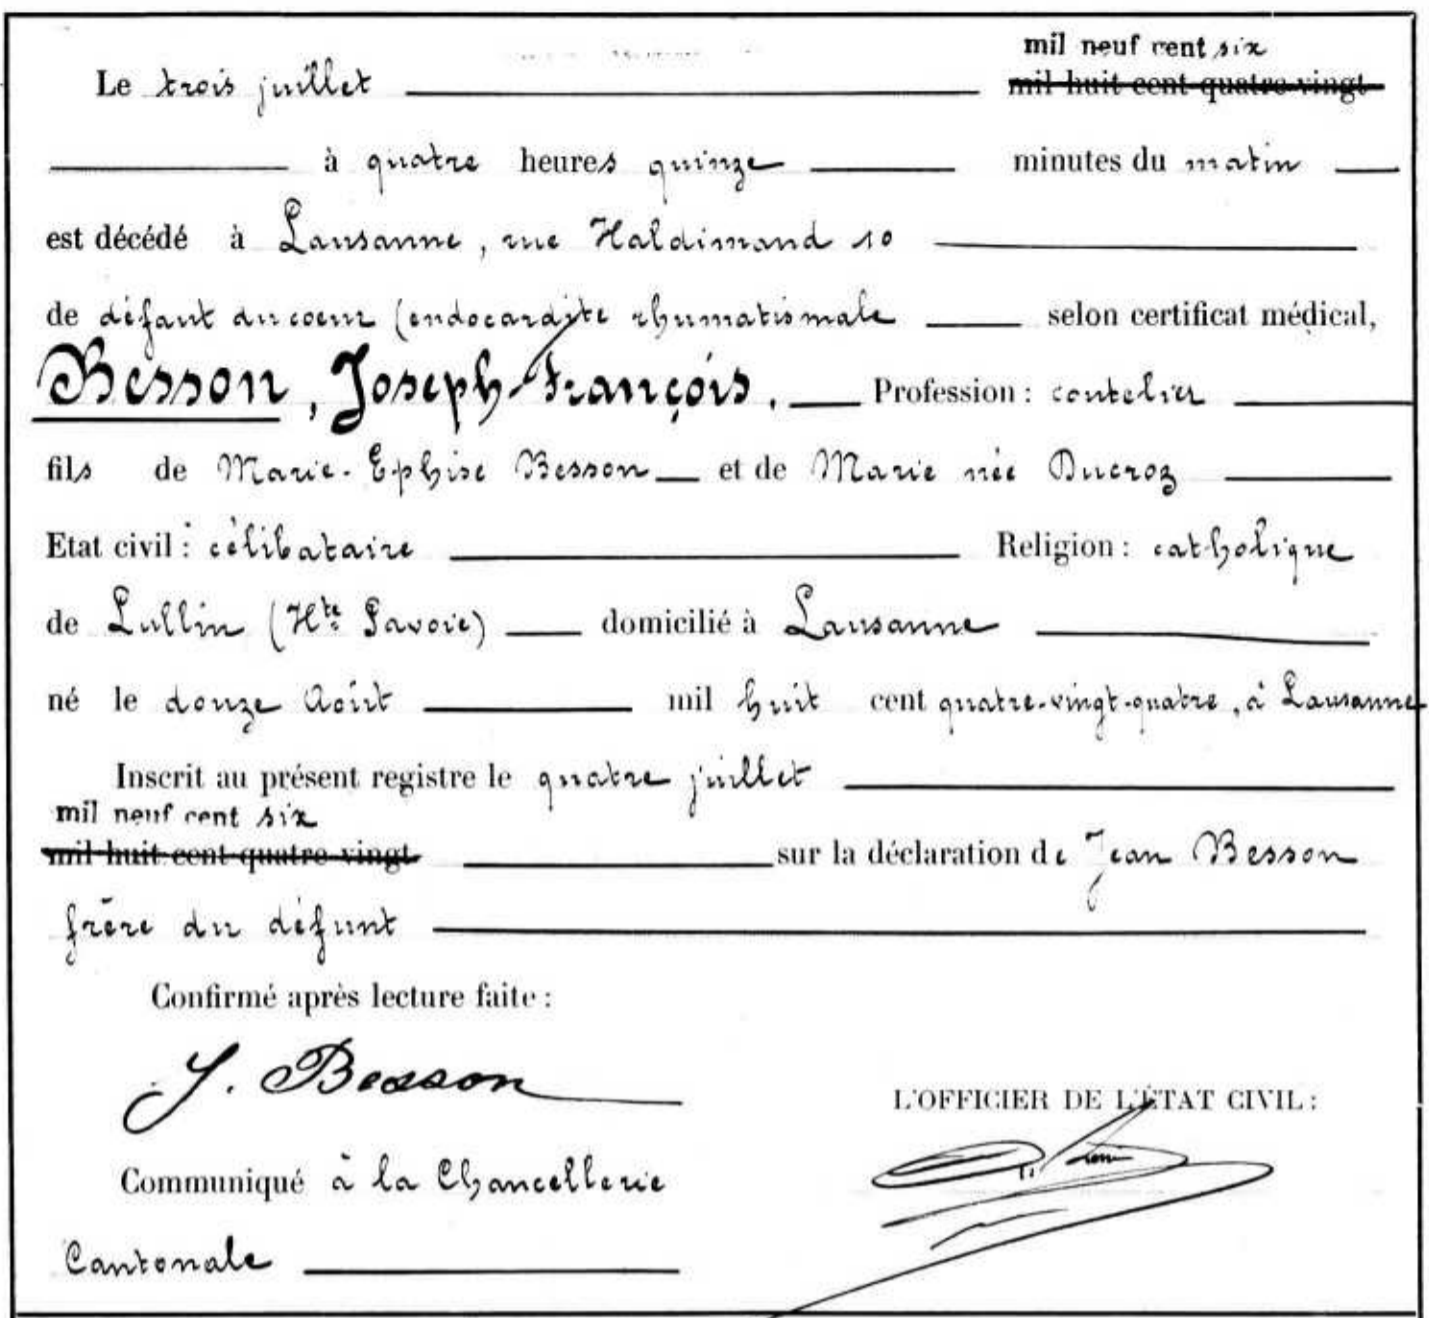 mil neuf cent six
Le trois juillet mil huit cent quatre-vingt
à quatre heures quinze minutes du matin
est décédé à Lausanne, rue Haldimand 10
de défaut du coeur (endocardite rhumatismale selon certificat médical,
Besson, Joseph-François. Profession : coutelier
fils de Marie-Ephise Besson et de Marie née Ducroz
Etat civil : célibataire Religion : catholique
de Lullin (Hte Savoie) domicilié à Lausanne
né le douze Août mil huit cent quatre-vingt-quatre, à Lausanne
Inscrit au présent registre le quatre juillet
mil neuf cent six
mil huit cent quatre-vingt sur la déclaration de Jean Besson
frère du défunt
Confirmé après lecture faite :
J. Besson
L'OFFICIER DE L'ÉTAT CIVIL :
Communiqué à la Chancellerie
Cantonale